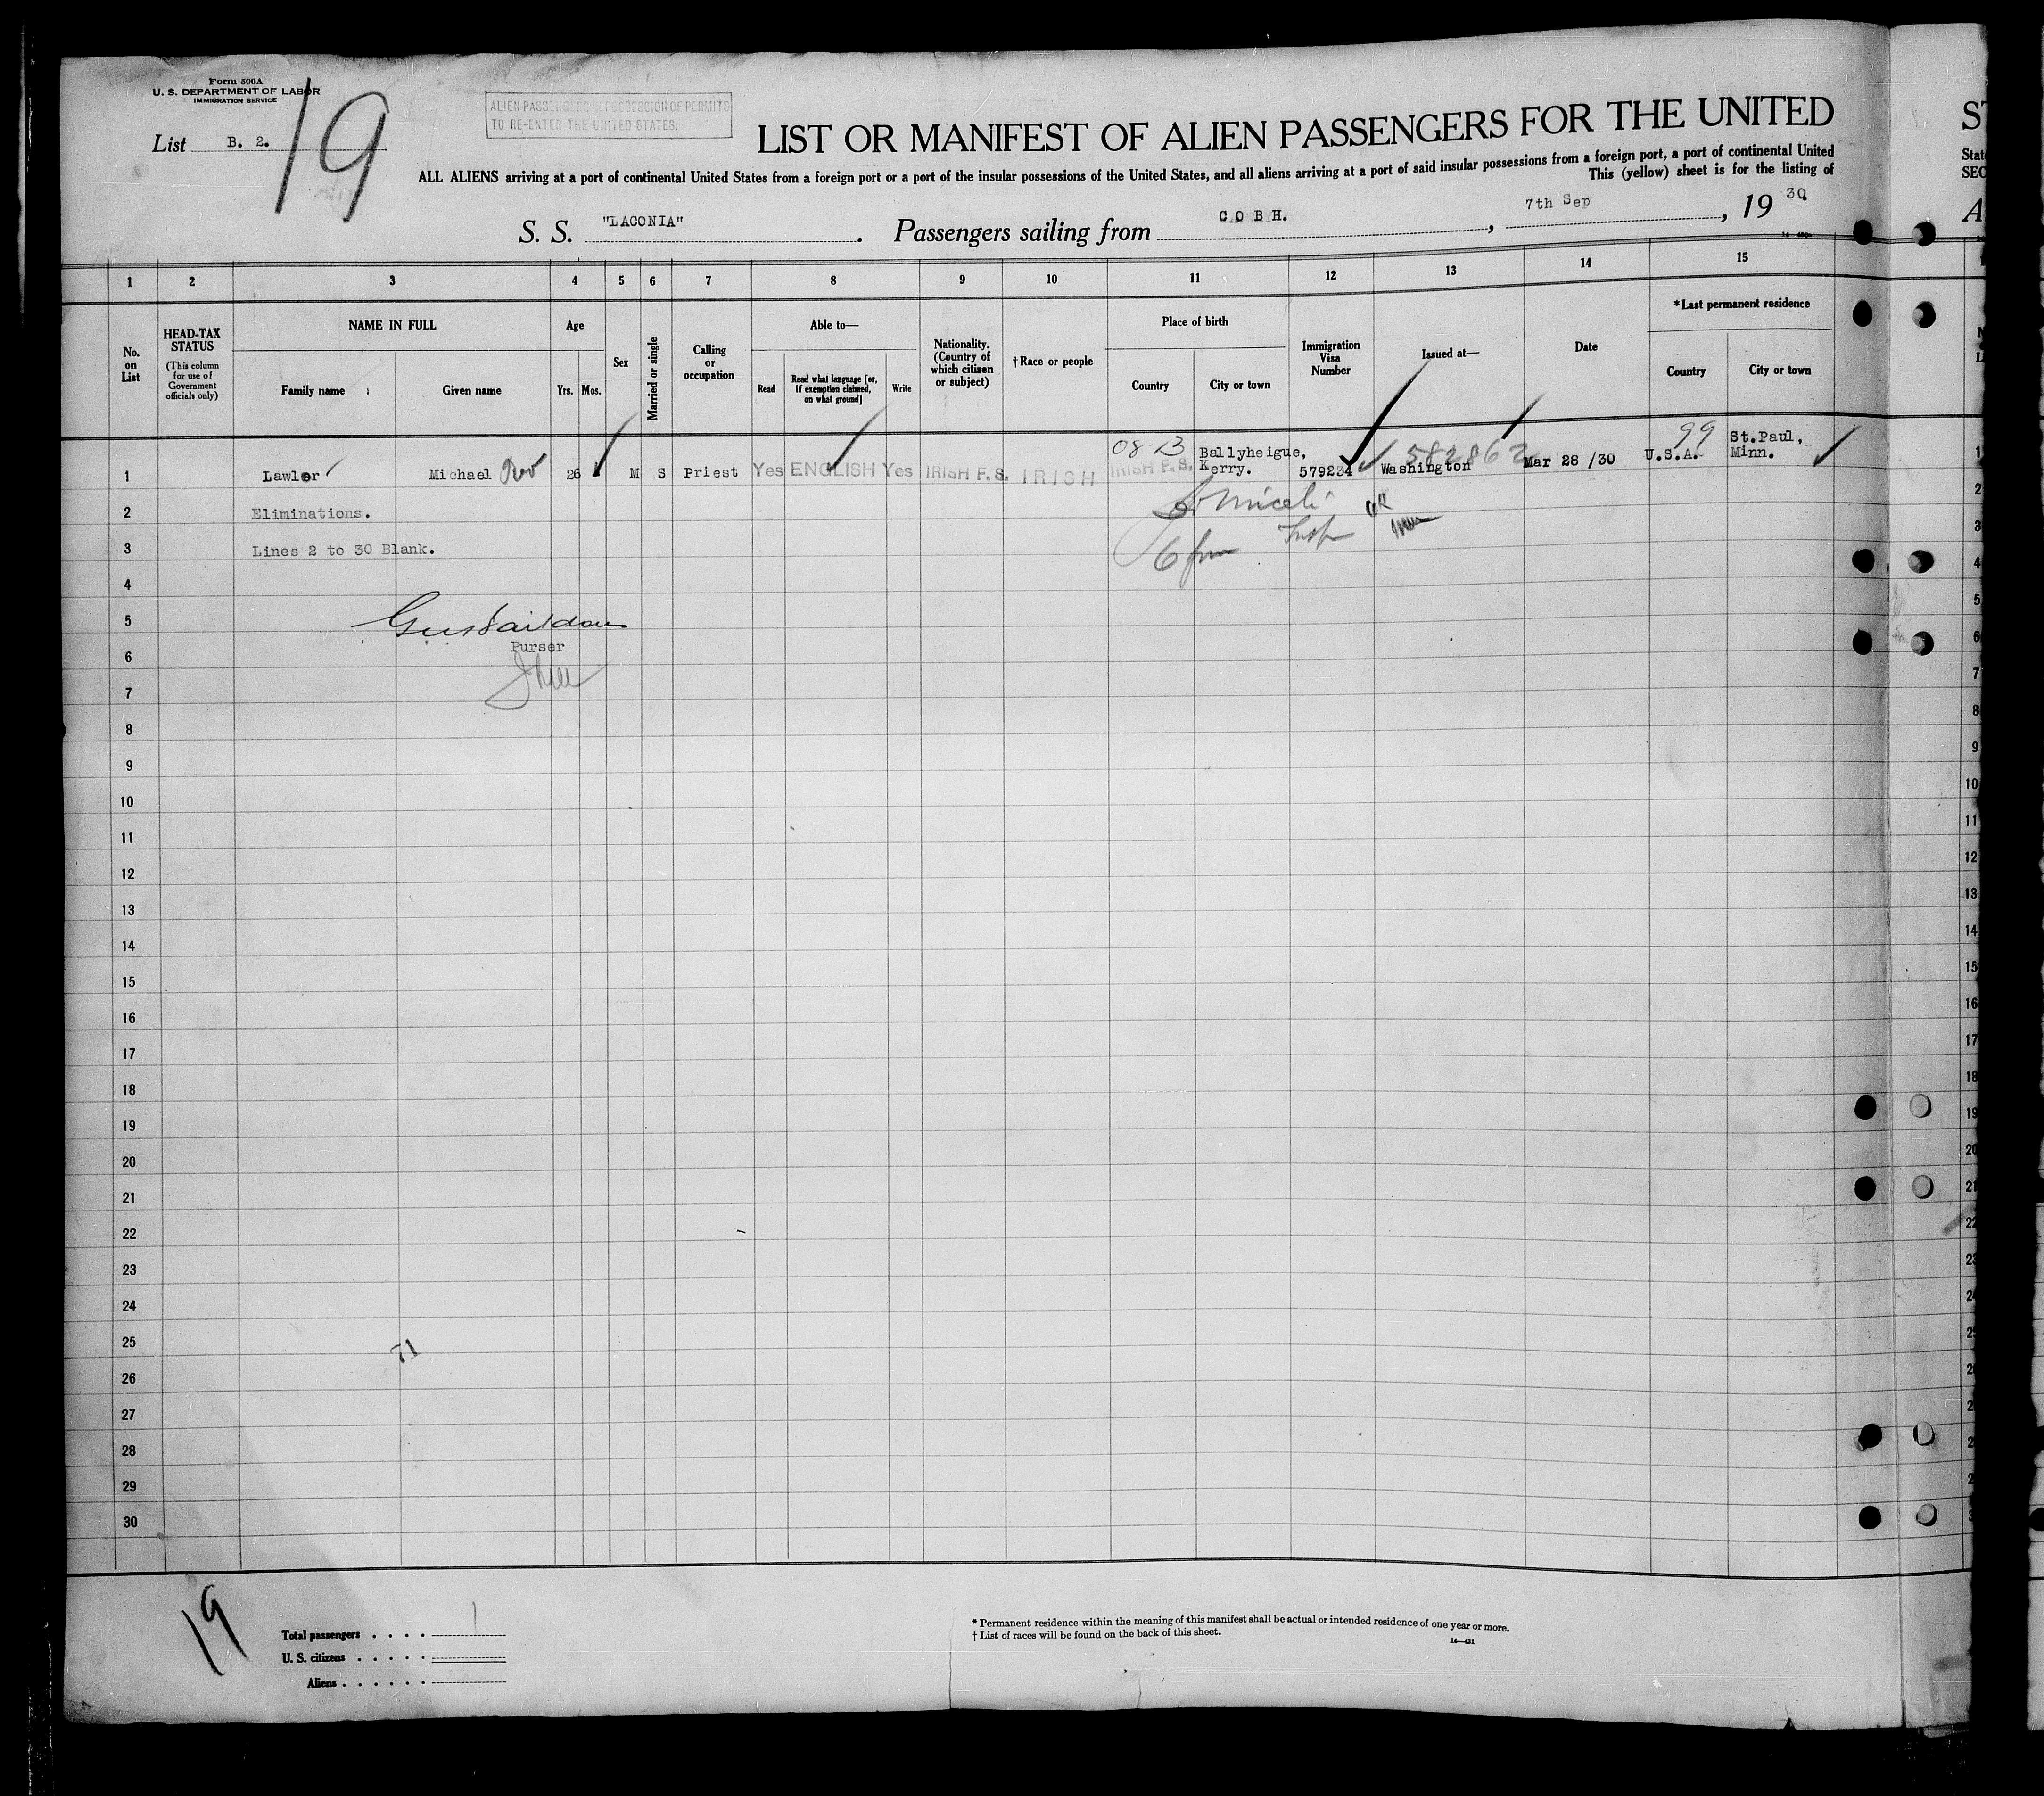 Form 500A
U. S. DEPARTMENT OF LABOR
IMMIGRATION SERVICE
List B. 2.
19
ALIEN PASSENGERS IN POSSESSION OF PERMITS
TO RE-ENTER THE UNITED STATES.
LIST OR MANIFEST OF ALIEN PASSENGERS FOR THE UNITED
ALL ALIENS arriving at a port of continental United States from a foreign port or a port of the insular possessions of the United States, and all aliens arriving at a port of said insular possessions from a foreign port, a port of continental United
This (yellow) sheet is for the listing of
S. S. "LACONIA". Passengers sailing from COBH., 7th Sep, 19 30
1 2 3 4 5 6 7 8 9 10 11 12 13 14 15
No. on List
HEAD-TAX STATUS
(This column for use of Government officials only)
NAME IN FULL
Family name
Given name
Age
Yrs. Mos.
Sex
Married or single
Calling or occupation
Able to—
Read
Read what language [or, if exemption claimed, on what ground]
Write
Nationality. (Country of which citizen or subject)
†Race or people
Place of birth
Country
City or town
Immigration Visa Number
Issued at—
Date
*Last permanent residence
Country
City or town
1 Lawlor Michael Rev 26 M S Priest Yes ENGLISH Yes IRISH F.S. IRISH IRISH F.S. Ballyheigue, Kerry. 579234 Washington 582862 Mar 28 /30 U.S.A. 99 St.Paul, Minn.
2 Eliminations.
3 Lines 2 to 30 Blank.
4
5
Purser
6
7
8
9
10
11
12
13
14
15
16
17
18
19
20
21
22
23
24
25
71
26
27
28
29
30
19
Total passengers . . . . 1
U. S. citizens . . . . .
Aliens . . . . . .
* Permanent residence within the meaning of this manifest shall be actual or intended residence of one year or more.
† List of races will be found on the back of this sheet.
14—431